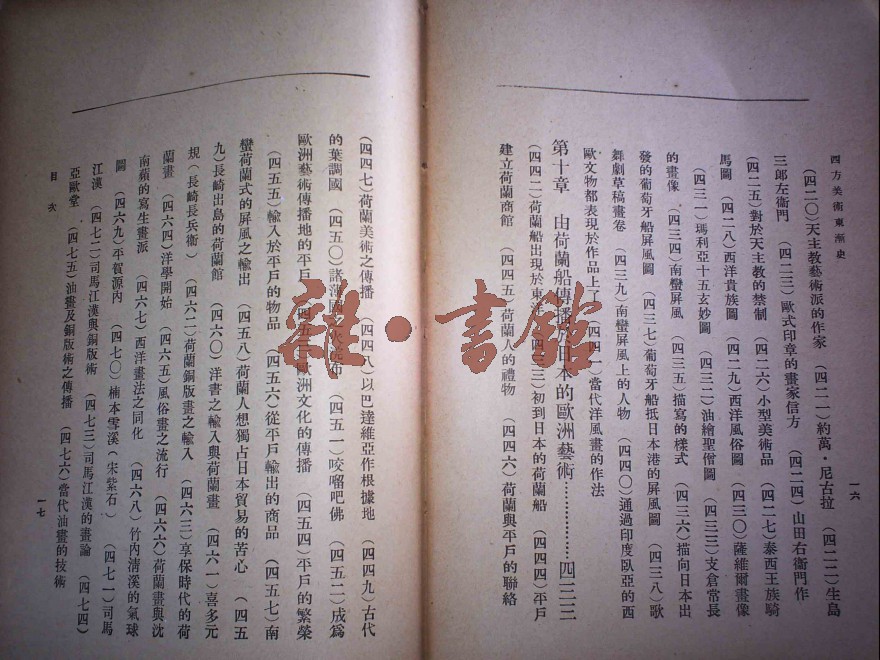 四方美術東漸史
一六
(四二〇)天主教藝術派的作家 (四二一)約萬・尼古拉 (四二二)生島
三郎左衞門 (四二三)歐式印章的畫家信方 (四二四)山田右衞門作
(四二五)對於天主教的禁制 (四二六)小型美術品 (四二七)泰西王族騎
馬圖 (四二八)西洋貴族圖 (四二九)西洋風俗圖 (四三〇)薩維爾畫像
(四三一)瑪利亞十五玄妙圖 (四三二)油繪聖僧圖 (四三三)支倉常長
的畫像 (四三四)南蠻屛風 (四三五)描寫的樣式 (四三六)描向日本出
發的葡萄牙船屛風圖 (四三七)葡萄牙船抵日本港的屛風圖 (四三八)歌
舞劇草稿畫卷 (四三九)南蠻屛風上的人物 (四四〇)通過印度臥亞的西
歐文物都表現於作品上了 (四四一)當代洋風畫的作法
第十章 由荷蘭船傳播於日本的歐洲藝術…………四三三
(四四二)荷蘭船出現於東洋 (四三三)初到日本的荷蘭船 (四四四)平戶
建立荷蘭商館 (四四五)荷蘭人的禮物 (四四六)荷蘭與平戶的聯絡
(四四七)荷蘭美術之傳播 (四四八)以巴達維亞作根據地 (四四九)古代
的葉調國 (四五〇)諸薄國 (四五一)咬𠺕吧佛 (四五二)成爲
歐洲藝術傳播地的平戶 (四五三)歐洲文化的傳播 (四五四)平戶的繁榮
(四五五)輸入於平戶的物品 (四五六)從平戶輸出的商品 (四五七)南
蠻荷蘭式的屛風之輸出 (四五八)荷蘭人想獨占日本貿易的苦心 (四五
九)長崎出島的荷蘭館 (四六〇)洋書之輸入與荷蘭畫 (四六一)喜多元
規(長崎長兵衞) (四六二)荷蘭銅版畫之輸入 (四六三)享保時代的荷
蘭畫 (四六四)洋學開始 (四六五)風俗畫之流行 (四六六)荷蘭畫與沈
南蘋的寫生畫派 (四六七)西洋畫法之同化 (四六八)竹內淸溪的氣球
圖 (四六九)平賀源內 (四七〇)楠本雪溪(宋紫石) (四七一)司馬
江漢 (四七二)司馬江漢與銅版術 (四七三)司馬江漢的畫論 (四七四)
亞歐堂 (四七五)油畫及銅版術之傳播 (四七六)當代油畫的技術
目次
一七
雜・書館